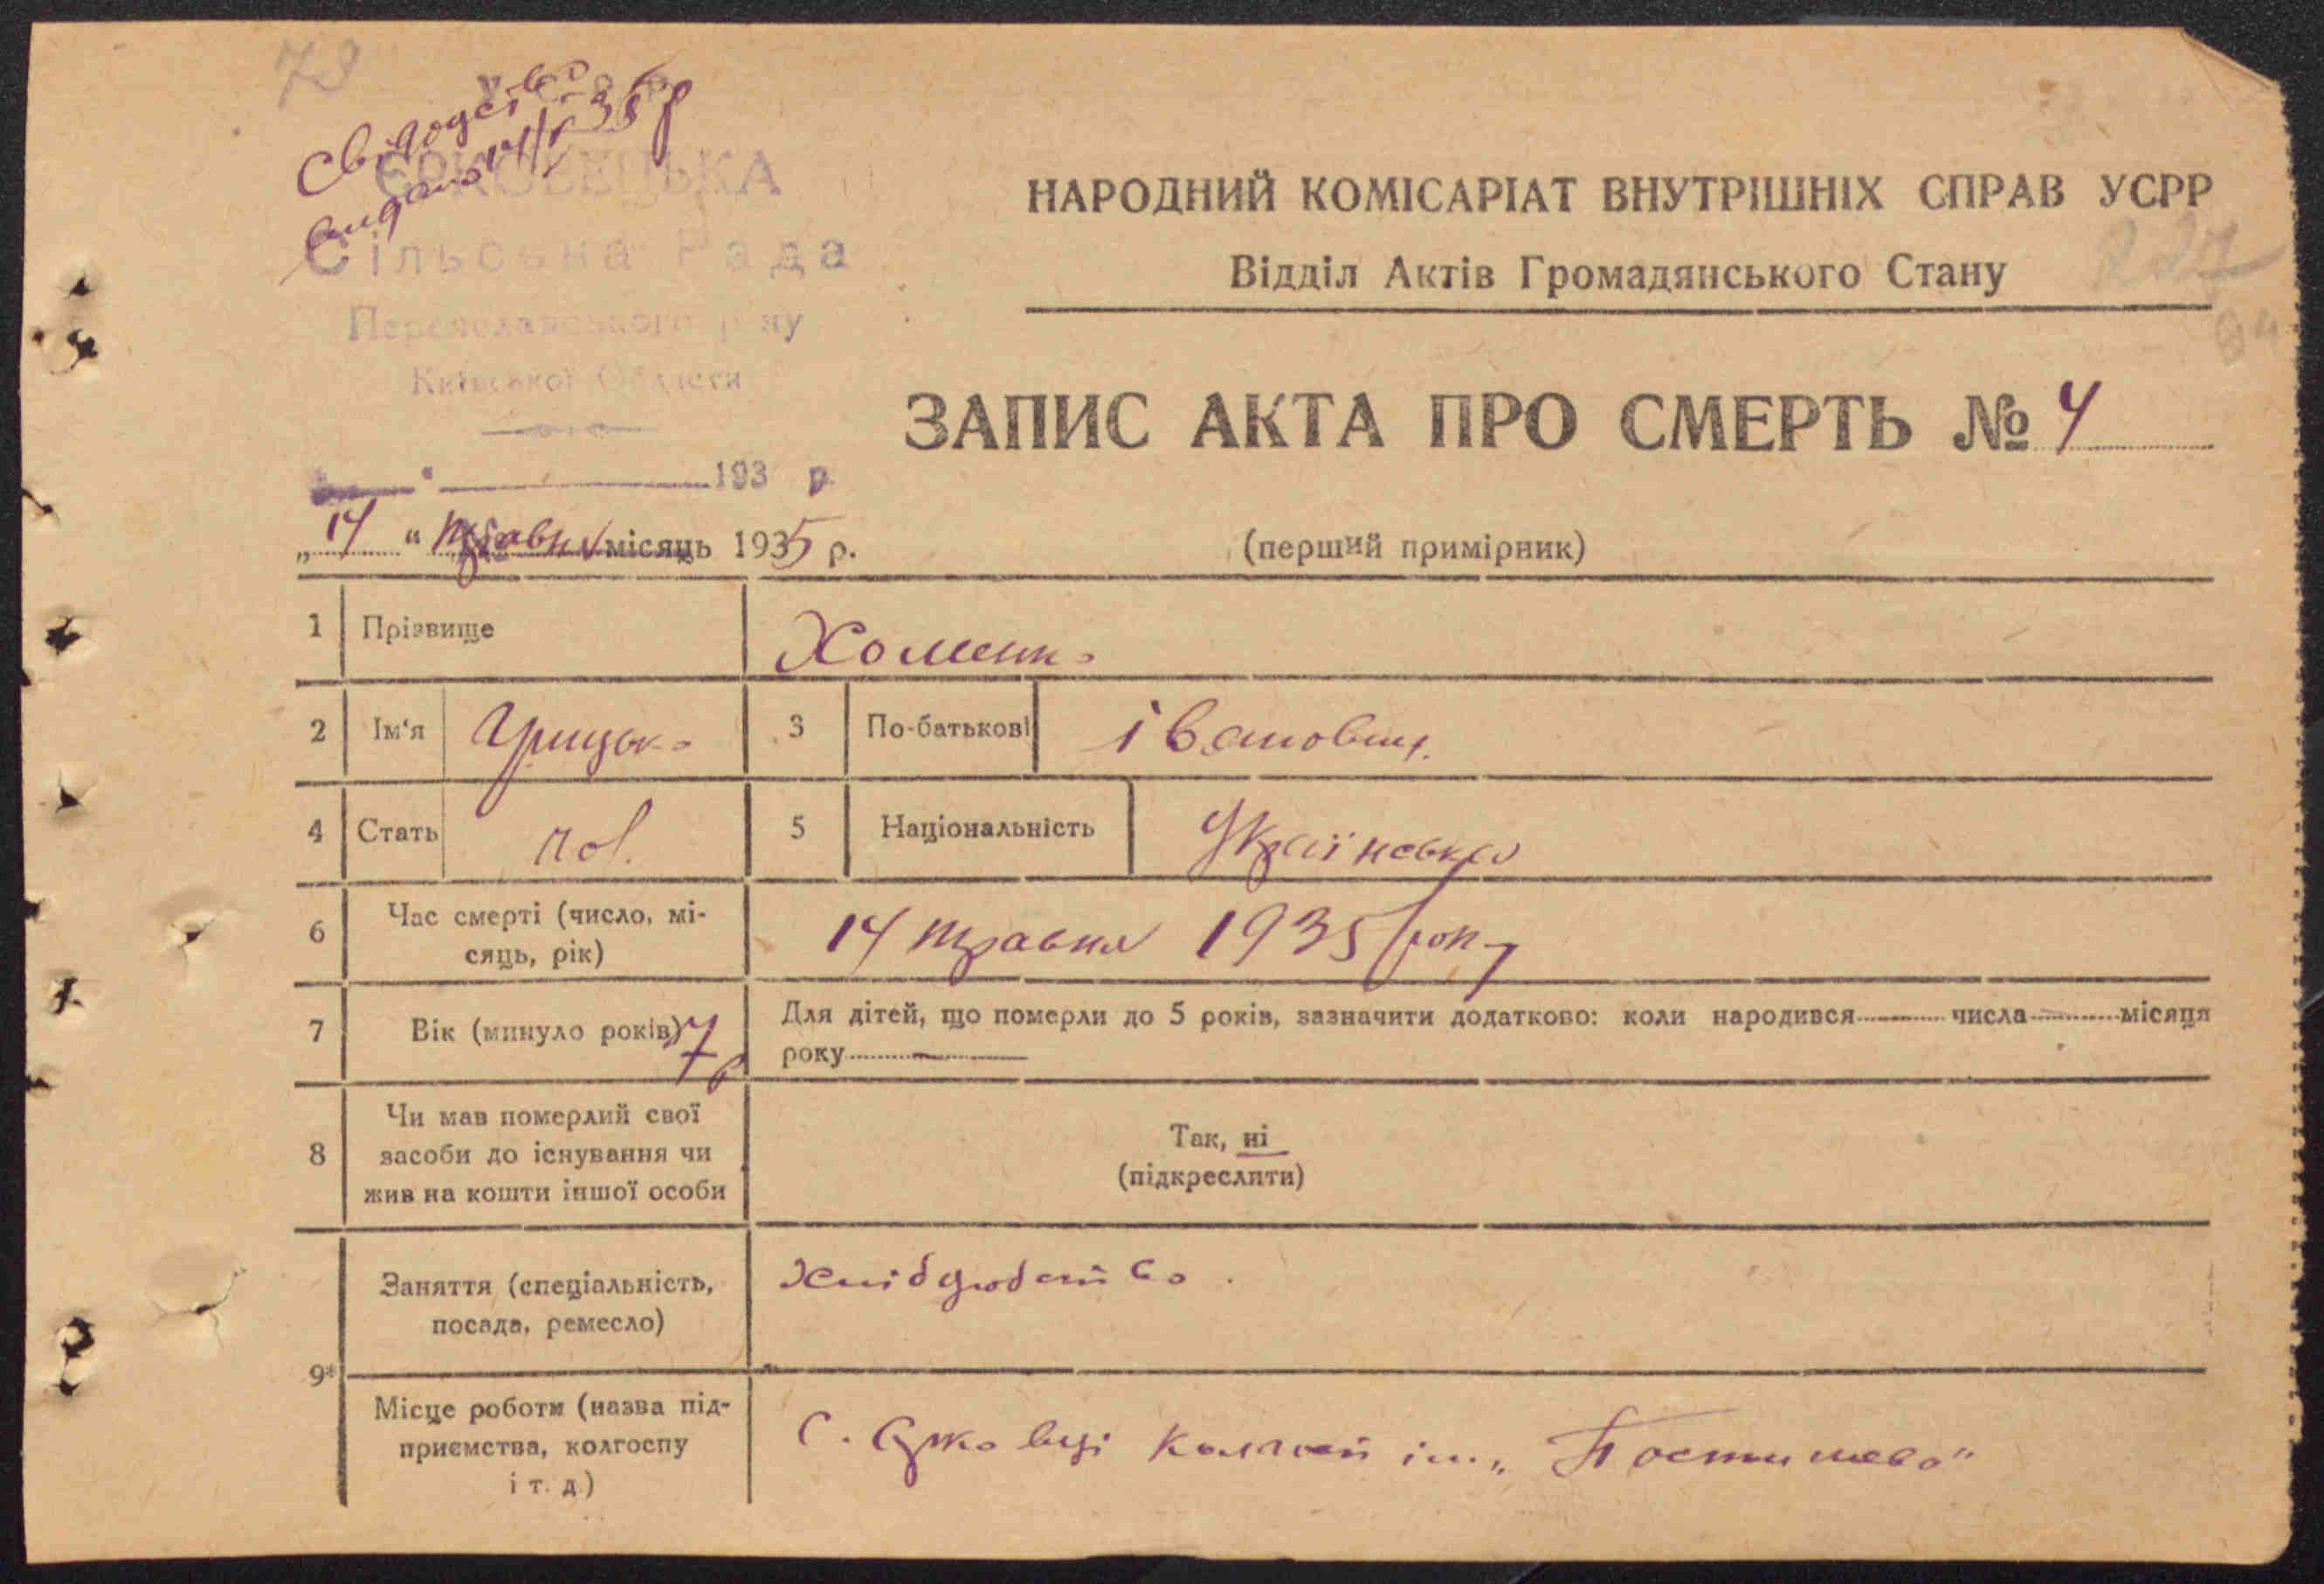 79
У.С.Р.Р.
Свідодство
видано 14/V 35 р
ЄРКОВЕЦЬКА
Сільська Рада
Переяславського р-ну
Київської Области
193 р.
НАРОДНИЙ КОМІСАРІАТ ВНУТРІШНІХ СПРАВ УСРР
Відділ Актів Громадянського Стану
227
94
ЗАПИС АКТА ПРО СМЕРТЬ № 4
„14“ травня місяць 1935 р.
(перший примірник)
1 Прізвище Хоменко
2 Ім‘я Грицько 3 По-батькові івановичь
4 Стать пол. 5 Національність Українська
6 Час смерті (число, мі-
сяць, рік) 14 травня 1935 року
7 Вік (минуло років) 7 р Для дітей, що померли до 5 років, зазначити додатково: коли народився — числа — місяця
року —
8 Чи мав померлий свої
засоби до існування чи
жив на кошти іншої особи
Так, ні
(підкреслити)
9* Заняття (спеціальність,
посада, ремесло) Хлібдробство.
Місце роботи (назва під-
приємства, колгоспу
і т. д.) С. Єрковці Колгосп ім. „Постишева“